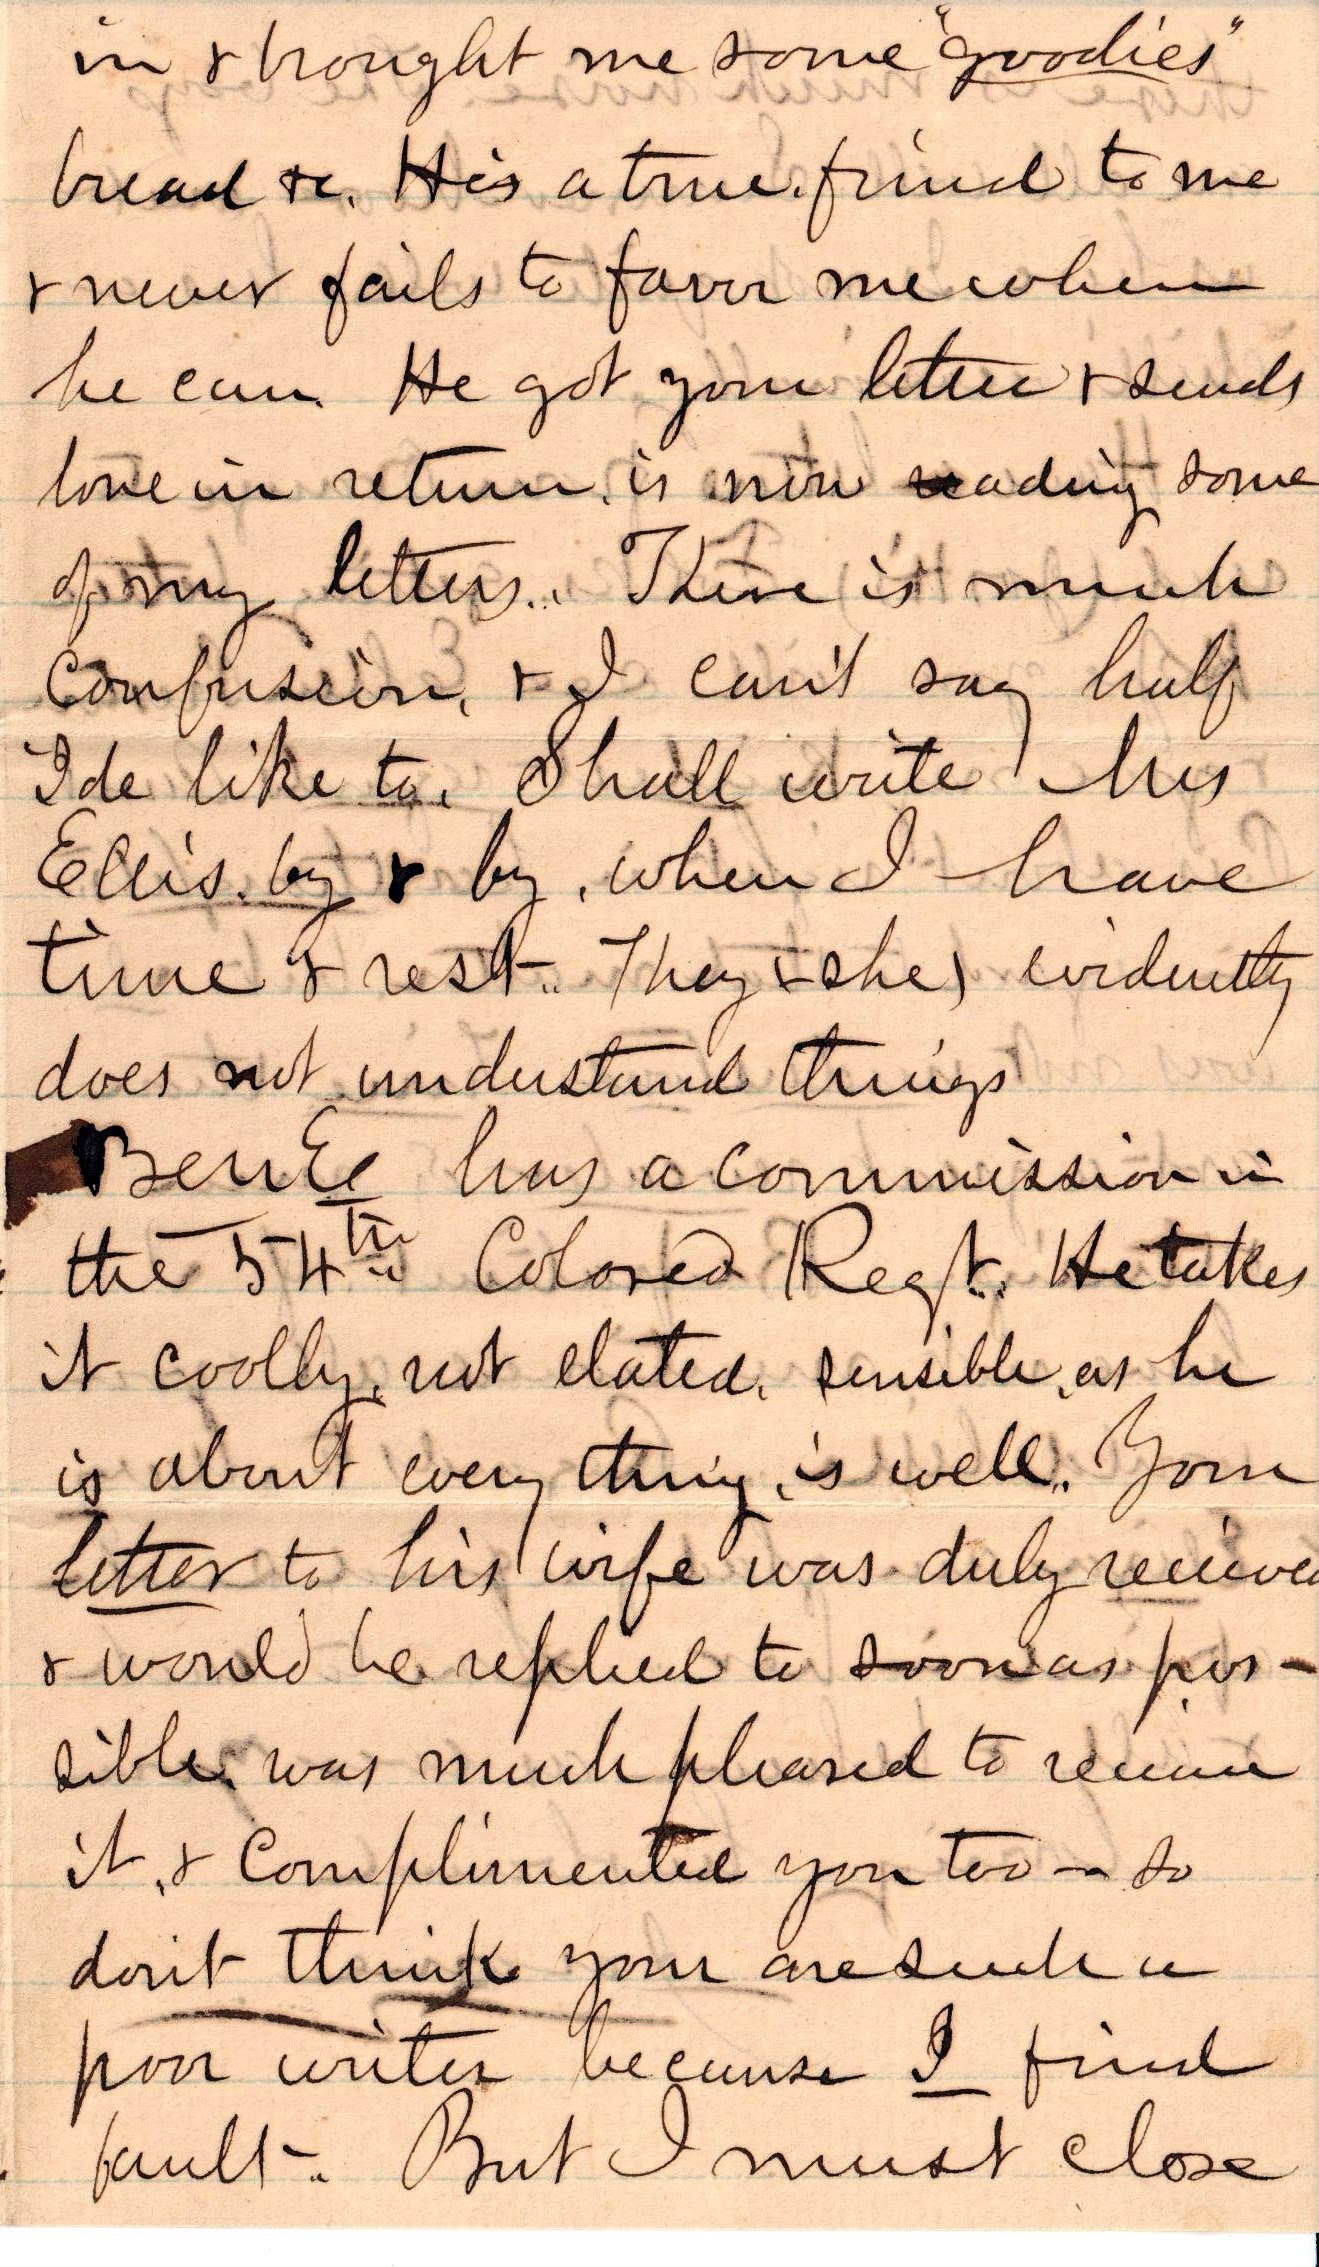 in & brought me some "goodies"
bread &c. His a true friend to me
& never fails to favor me when
he can. He got your letter & sends
love in return, is now reading some
of my letters. There is much
confusion, & I can't say half
I de like to. Shall write Mrs
Ellis. by & by, when I have
time & rest. They (& she) evidently
does not understand things
Ben Ee has a commission in
the 54th Colored Regt. He takes
it coolly, not elated, sensible, as he
is about every thing, is well. Your
letter to his wife was duly received
& would be replied to soon as pos-
sible. was much pleased to receive
it, & complimented you too — so
don't think your are such a
poor writer because I find
fault. But I must close